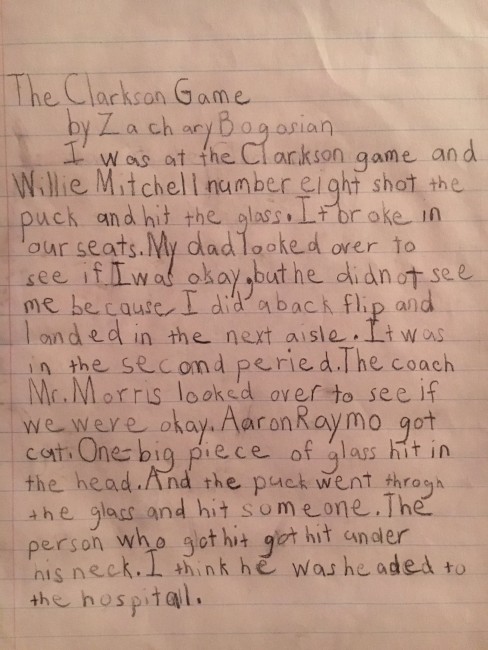 The Clarkson Game
by Zachary Bogosian
I was at the Clarkson game and
Willie Mitchell number eight shot the
puck and hit the glass. It broke in
our seats. My dad looked over to
see if I was okay, but he did not see
me because I did a back flip and
landed in the next aisle. It was
in the second peried. The coach
Mr. Morris looked over to see if
we were okay. Aaron Raymo got
cut. One big piece of glass hit in
the head. And the puck went throgh
the glass and hit someone. The
person who got hit got hit under
his neck. I think he was headed to
the hospitall.